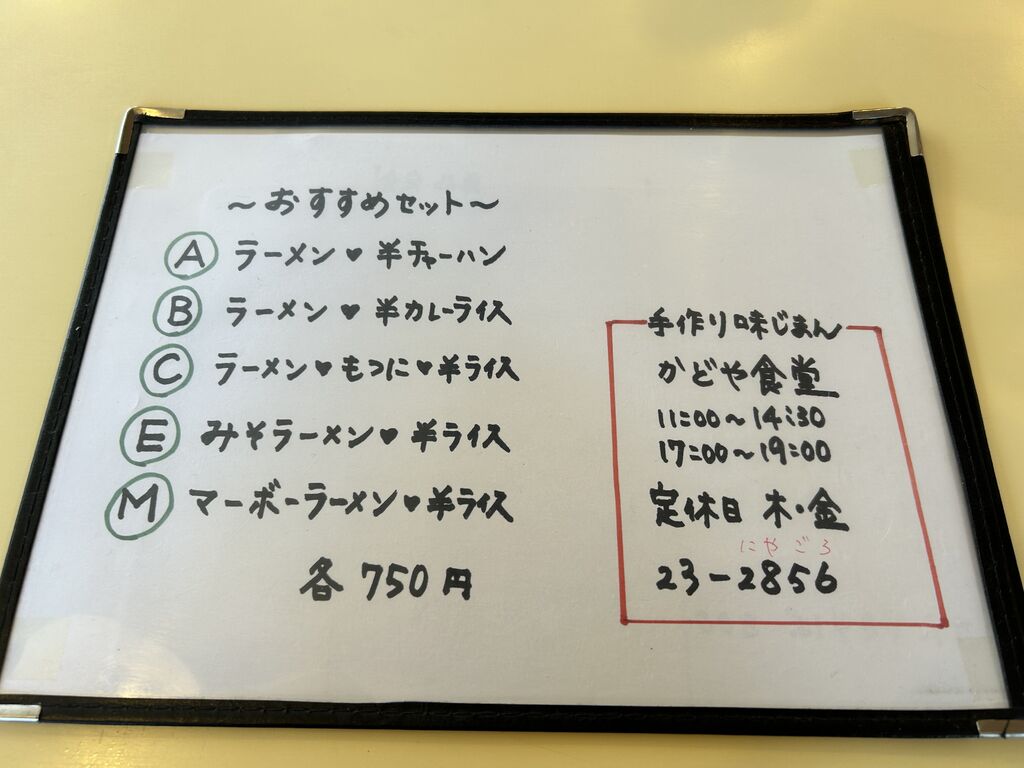 ～おすすめセット～
Ⓐ ラーメン♥半チャーハン
Ⓑ ラーメン♥半カレーライス
Ⓒ ラーメン♥もつに♥半ライス
Ⓔ みそラーメン♥半ライス
Ⓜ マーボーラーメン♥半ライス
各750円
手作り味じまん
かどや食堂
11:00～14:30
17:00～19:00
定休日 木・金
にやごろ
23-2856